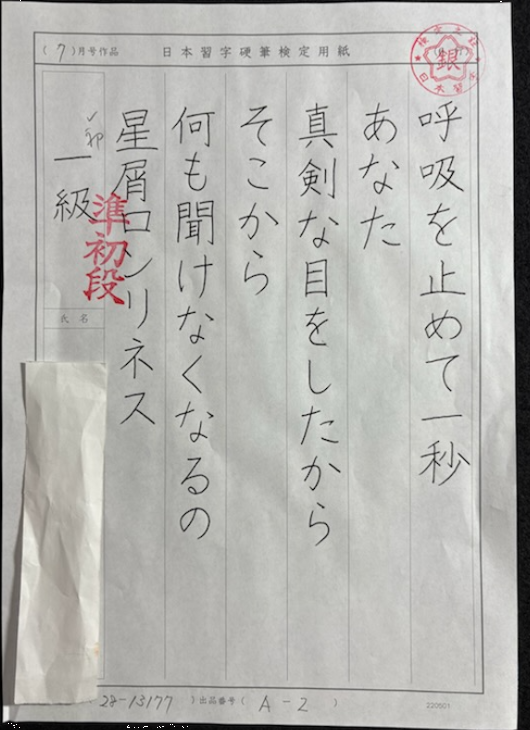 (7)月号作品
日本習字硬筆検定用紙
銀
呼吸を止めて一秒
あなた
真剣な目をしたから
そこから
何も聞けなくなるの
星屑ロンリネス
一級
準初段
氏名
28-13177
)出品番号( A-2 )
220601